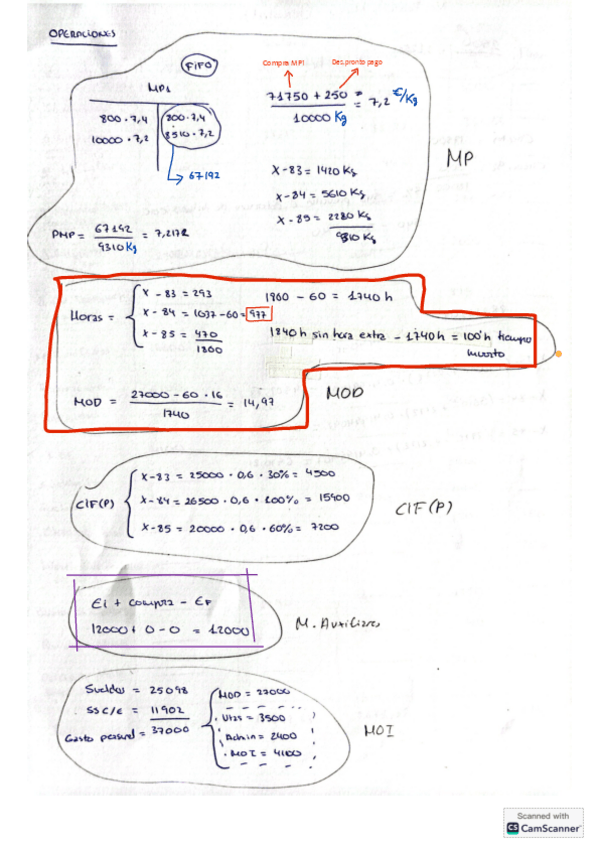 OPERACIONES
FIFO
Compra MP1
Desc pronto pago
MP1
800 · 7,4
800 · 7,4
10000 · 7,2
8510 · 7,2
67192
71750 + 250 / 10000 Kg = 7,2 €/Kg
X-83 = 1420 Kg
X-84 = 5610 Kg
X-85 = 2280 Kg
9310 Kg
PMP = 67192 / 9310 Kg = 7,2172
MP
Horas =
X-83 = 293
X-84 = 1037-60 = 977
X-85 = 470
1800
1860 - 60 = 1740 h
1840 h sin hora extra - 1740 h = 100 h tiempo
muerto
MOD = 27000 - 60 · 16 / 1740 = 14,97
MOD
CIF(P)
X-83 = 25000 · 0,6 · 30% = 4500
X-84 = 26500 · 0,6 · 100% = 15900
X-85 = 20000 · 0,6 · 60% = 7200
CIF (P)
Ei + compra - EF
12000 + 0 - 0 = 12000
M. Auxiliares
Sueldos = 25098
SS C/E = 11902
Gasto personal = 37000
MOD = 27000
Vtas = 3500
Admin = 2400
MOI = 4100
MOI
Scanned with
CS CamScanner